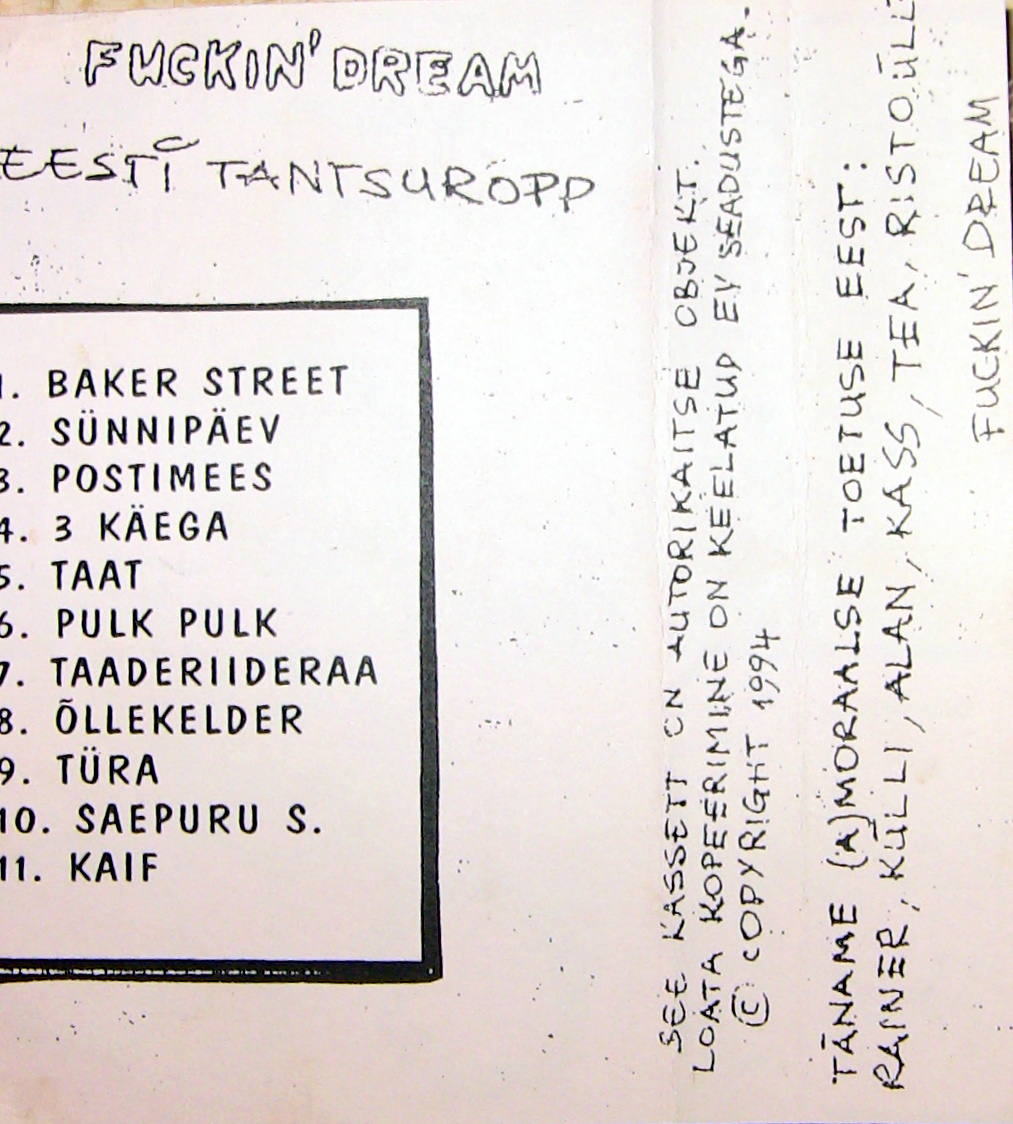 FUCKIN' DREAM
EESTI TANTSUROPP
1. BAKER STREET
2. SÜNNIPÄEV
3. POSTIMEES
4. 3 KÄEGA
5. TAAT
6. PULK PULK
7. TAADERIIDERAA
8. ÕLLEKELDER
9. TÜRA
10. SAEPURU S.
11. KAIF
SEE KASSETT ON AUTORIKAITSE OBJEKT.
LOATA KOPEERIMINE ON KEELATUD EV SEADUSTEGA.
© COPYRIGHT 1994
TÄNAME (A)MORAALSE TOETUSE EEST:
RAINER, KÜLLI, ALAN, KASS, TEA, RISTO
FUCKIN' DREAM